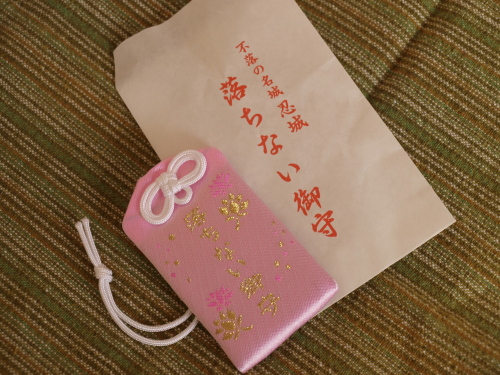 不落の名城 忍城
落ちない御守
落ちない御守